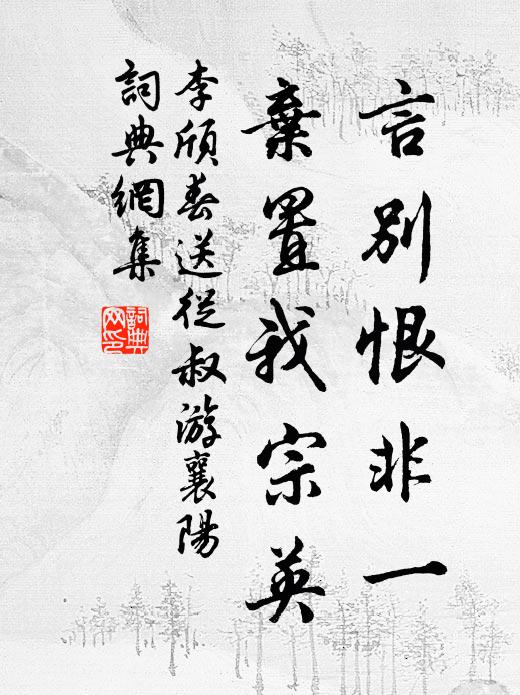 言別恨非一
棄置我宗英
李頎春送從叔游襄陽
詞典網集
詞典网印